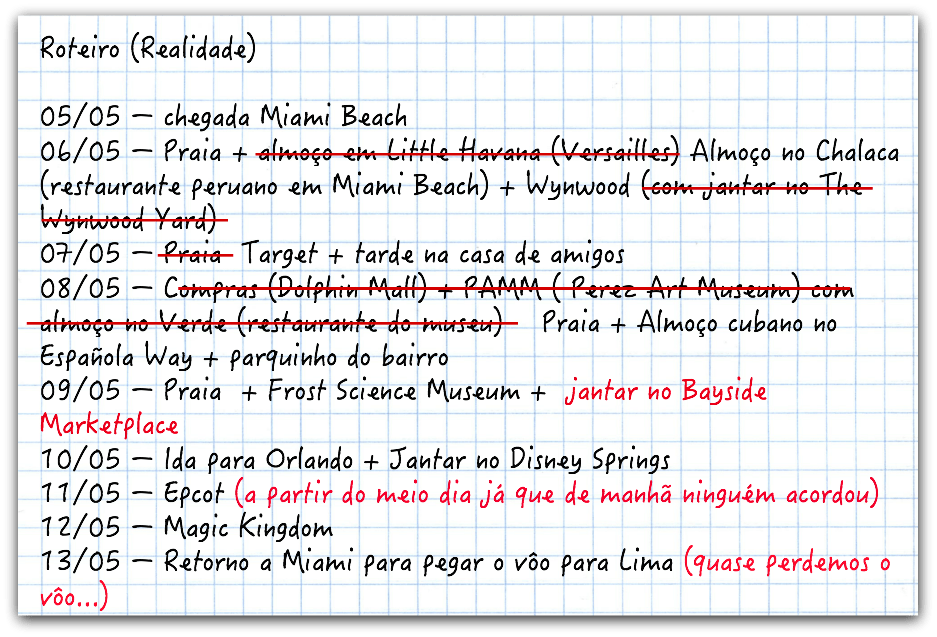 Roteiro (Realidade)
05/05 – chegada Miami Beach
06/05 – Praia + almoço em Little Havana (Versailles) Almoço no Chalaca
(restaurante peruano em Miami Beach) + Wynwood (com jantar no The
Wynwood Yard)
07/05 – Praia Target + tarde na casa de amigos
08/05 – Compras (Dolphin Mall) + PAMM ( Perez Art Museum) com
almoço no Verde (restaurante do museu) Praia + Almoço cubano no
Española Way + parquinho do bairro
09/05 – Praia + Frost Science Museum + jantar no Bayside
Marketplace
10/05 – Ida para Orlando + Jantar no Disney Springs
11/05 – Epcot (a partir do meio dia já que de manhã ninguém acordou)
12/05 – Magic Kingdom
13/05 – Retorno a Miami para pegar o vôo para Lima (quase perdemos o
vôo...)